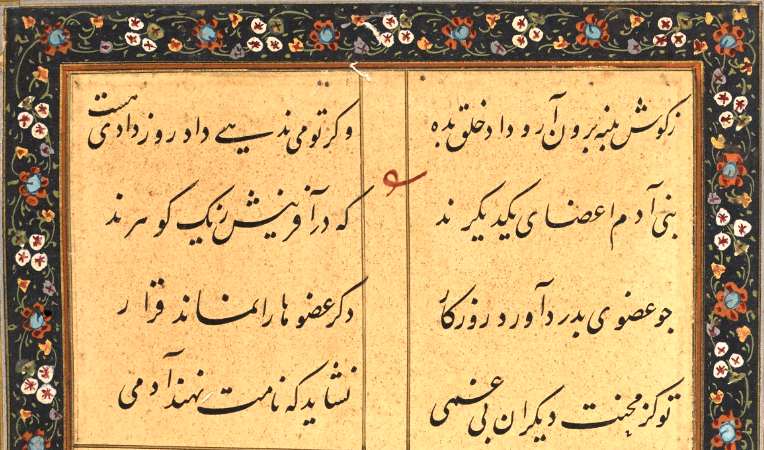 زکوش پنبه برون آر و داد خلق بده وکر تو می ندهی داد روز دادی هست
بنی آدم اعضای یکدیکرند که در آفرینش ز یک کوهرند
جو عضوی بدرد آورد روزکار دکر عضوها را نماند قرار
تو کز محنت دیکران بی غمی نشاید که نامت نهند آدمی